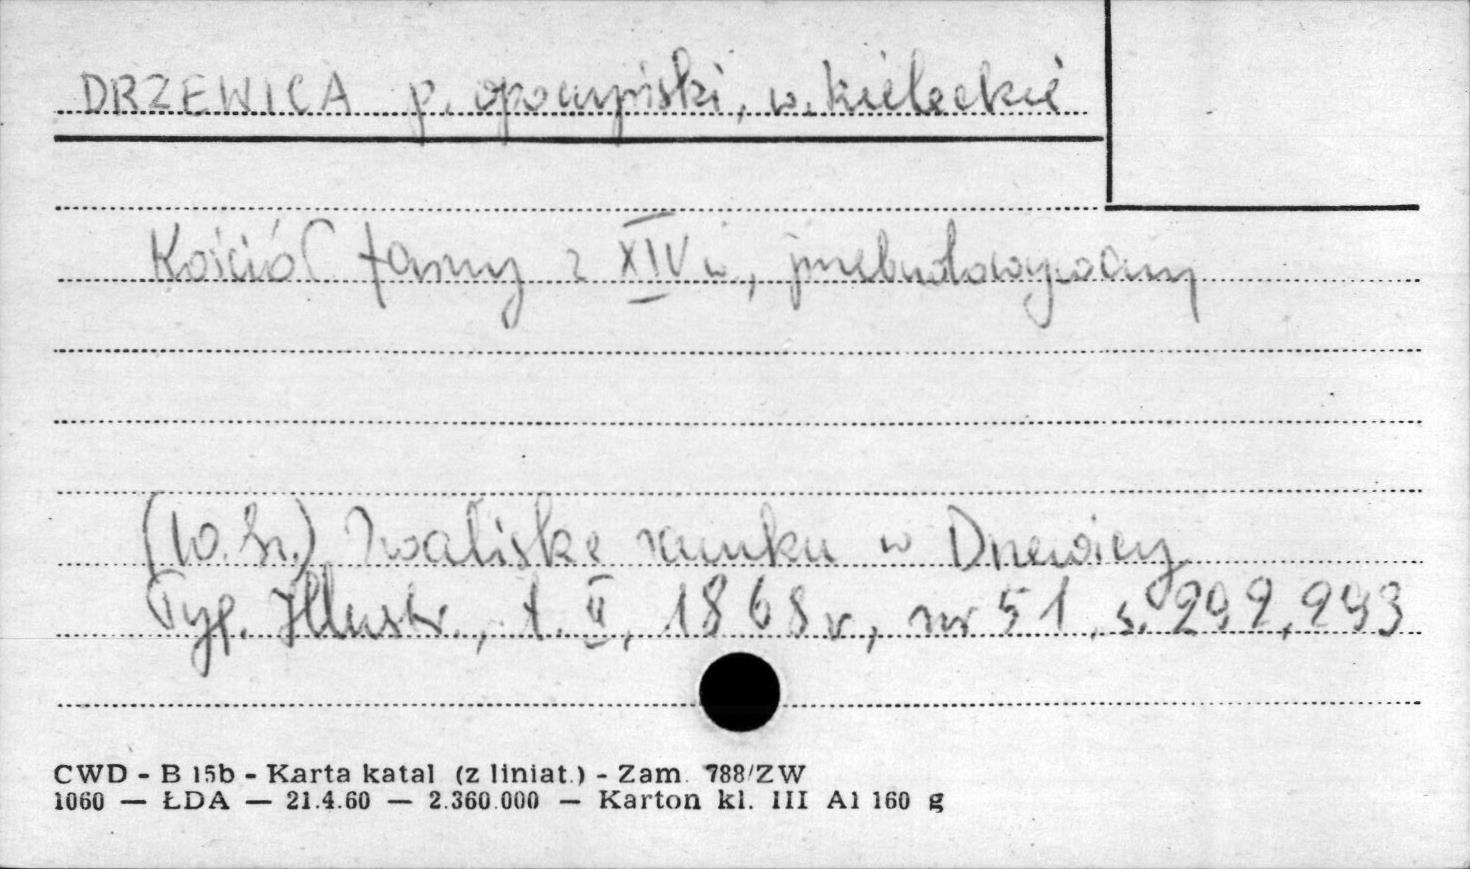 DRZEWICA p. opoczyński, w. kieleckie
Kościół farny z XIV w., przebudowywany
(W. Sz.) Zwaliska zamku w Drzewicy
Tyg. Illustr., t. II, 1868 r, nr 51, s. 292, 293
CWD - B 15b - Karta katal (z liniat.) - Zam. 788/ZW
1060 — ŁDA — 21.4.60 — 2.360.000 — Karton kl. III A1 160 g